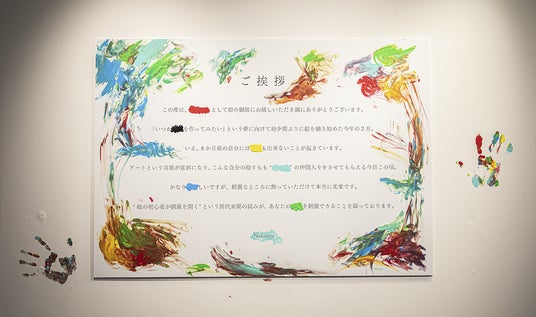 ご挨拶
この度は、としての初の個展にお越しいただき誠にありがとうございます。
「いつかを作ってみたい」という夢に向けて幼少期ぶりに絵を描き始めた今年の2月。
いま、8か月前の自分にはも出来ないことが起きています。
アートという言葉が変幻になり、こんな自分の絵すらも“の仲間入りをさせてもらえる今日この頃。
かなりしいですが、綺麗なところに飾っていただけて本当に光栄です。
“絵の初心者が個展を開く”という前代未聞の試みが、あなたのを刺激できることを願っております。